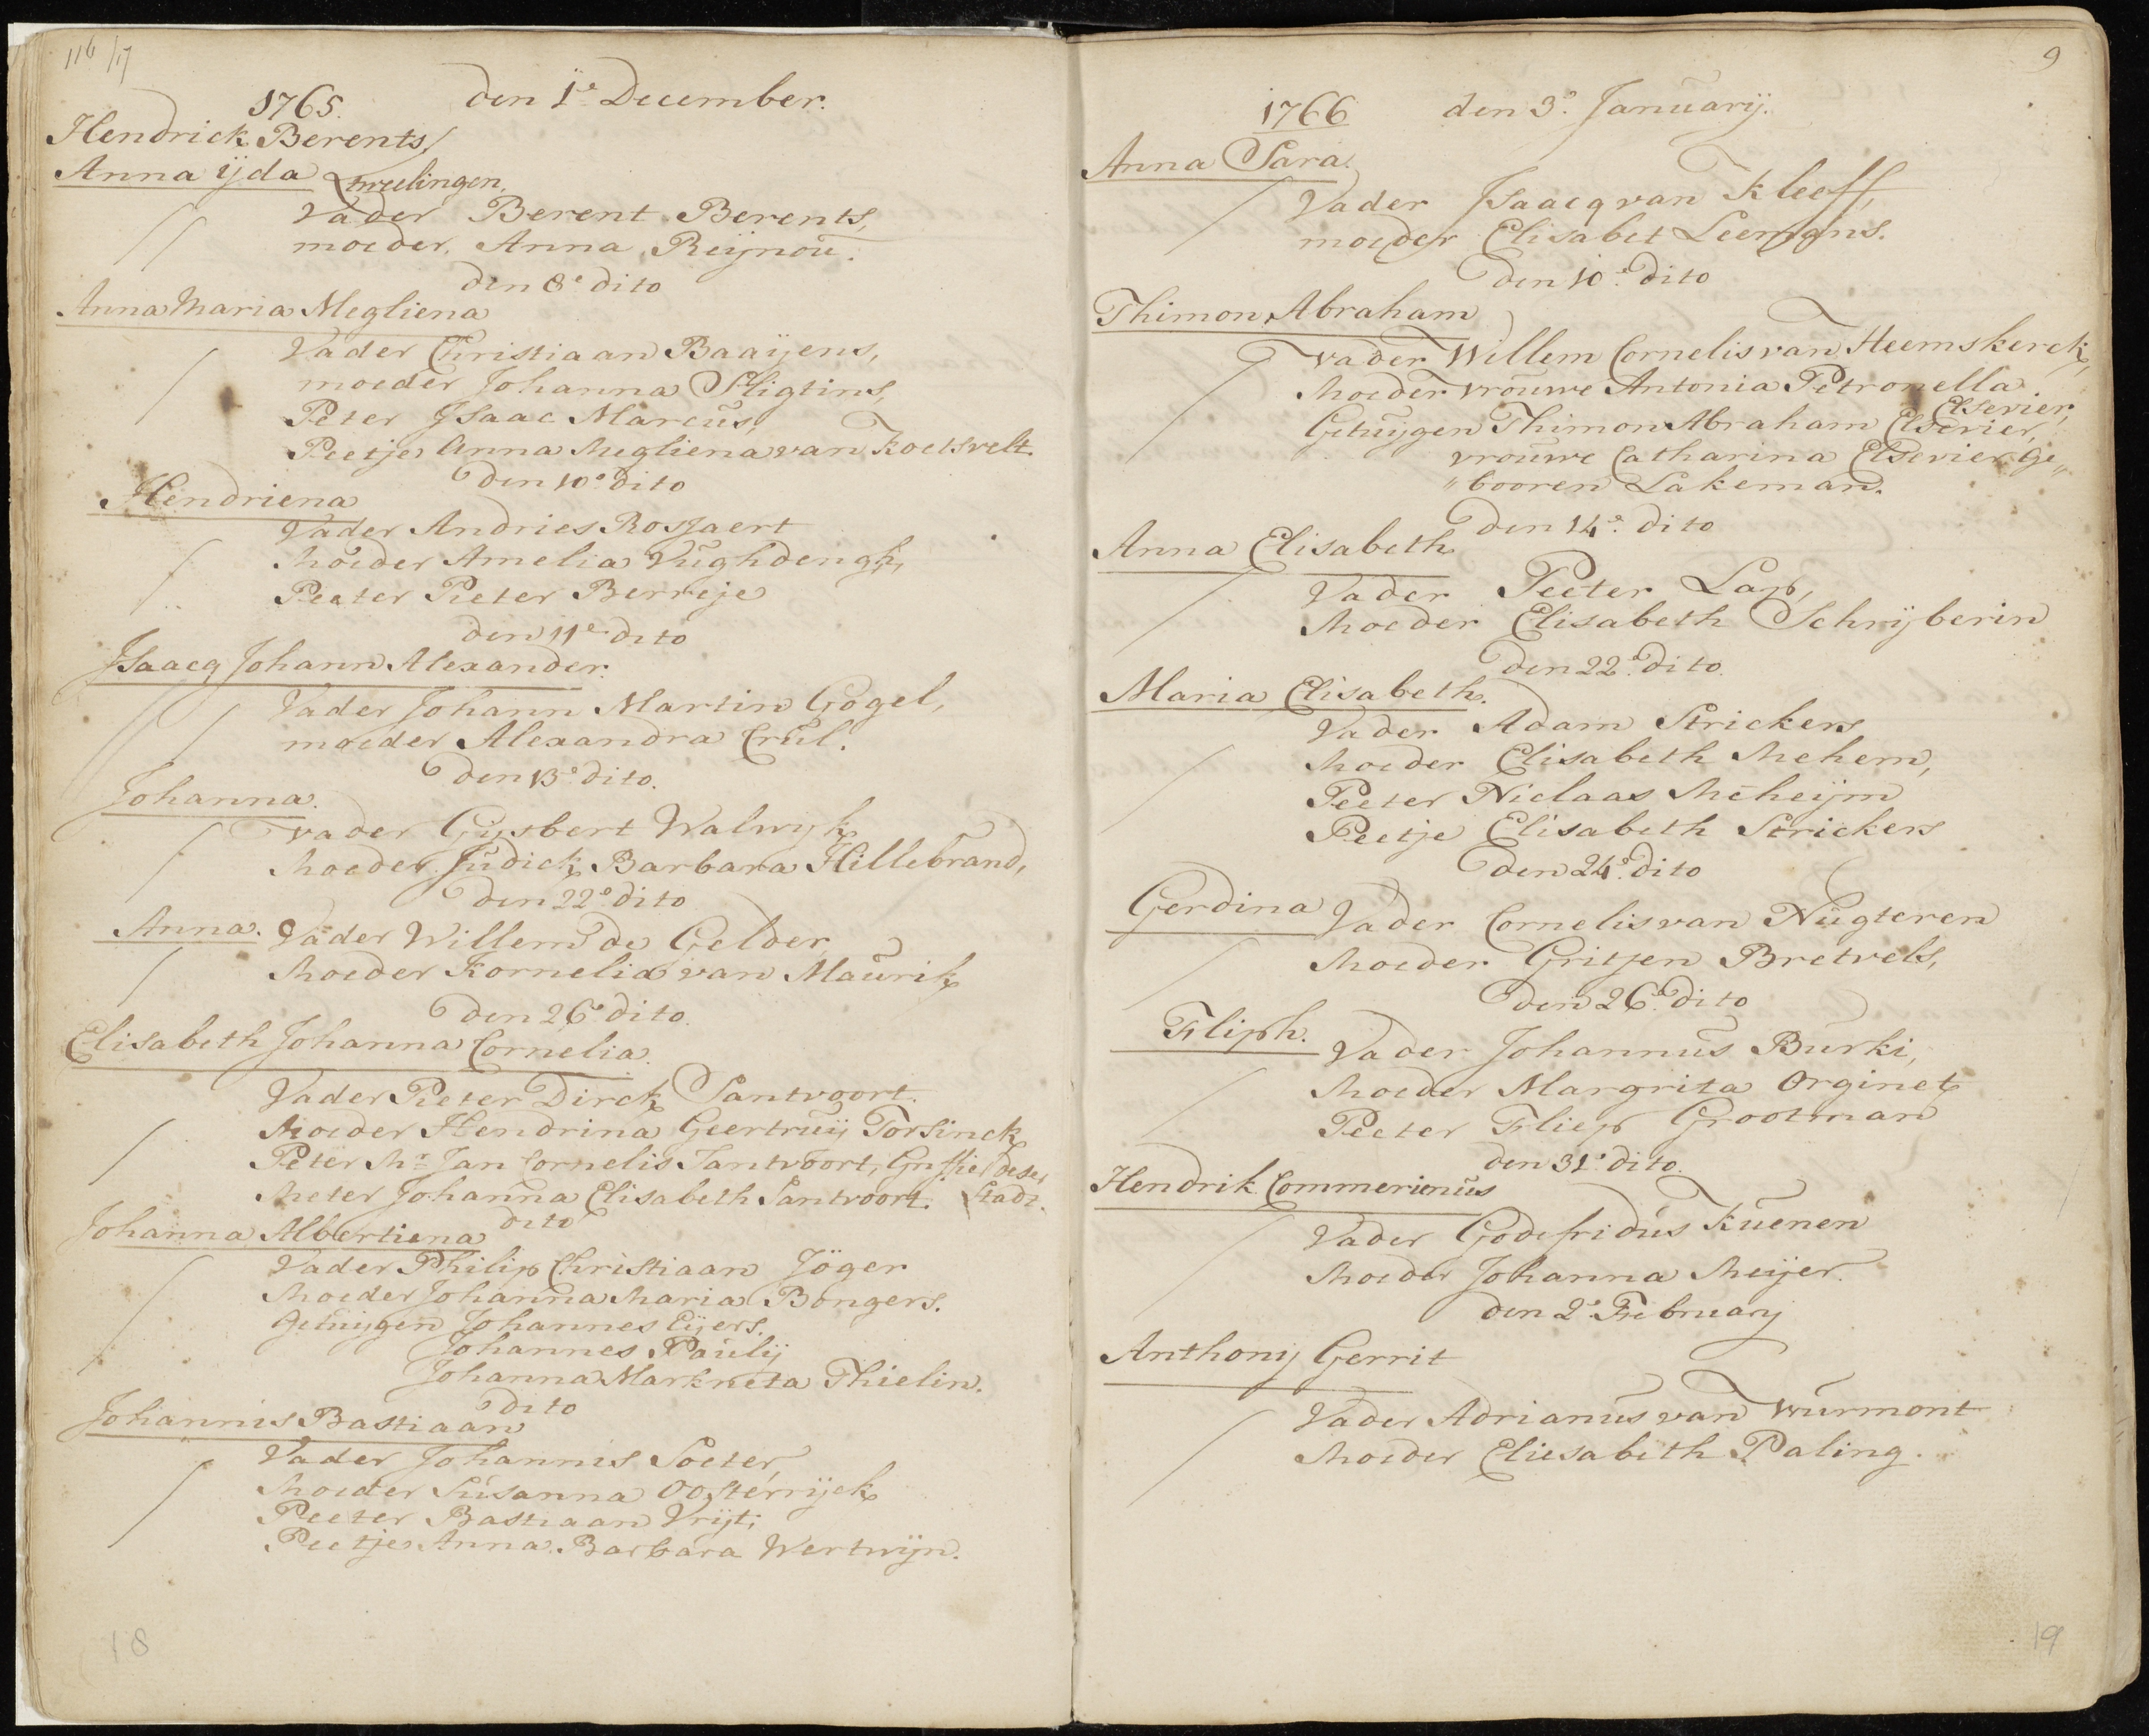 116/17
1765. den 1e December.
Hendrick Berents
Anna ijda tweelingen,
Vader Berent Berents,
moeder, Anna Reijnou.
den 8e dito
Anna Maria Megliena
Vader Christiaan Baaijens,
moeder Johanna Sligtins,
Peter Isaac Marcus,
Peetje Anna Megliena van Koetsvelt.
den 10e dito
Hendriena
Vader Andries Rosjaert
Moeder Amelia Vughdengh,
Peeter Pieter Berreje
den 11e dito
Isaacq Johann Alexander.
Vader Johann Martin Gogel,
moeder Alexandra Crul.
den 13e dito.
Johanna.
Vader Gijsbert Walwyk
Moeder Judick Barbara Hillebrand,
den 22e dito
Anna. Vader Willem de Gelder
Moeder Kornelia van Maurik
den 26e dito.
Elisabeth Johanna Cornelia.
Vader Pieter Dirck Santvoort.
Moeder Hendrina Geertruij Torsinck
Peter Mr. Jan Cornelis Santvoort, Griffie deser
Meter Johanna Elisabeth Santvoort. Stadt.
dito
Johanna Albertiena
Vader Philip Christiaan Jöger
Moeder Johanna Maria Bongers.
Getuijgen Johannes Eijers.
Johannes Paulij
Johanna Markneta Thielin.
dito
Johannis Bastiaan
Vader Johannis Soeter,
Moeder Susanna Oosterrijck
Peeter Bastiaan Vrijt;
Peetje Anna Barbara Wertwijn.
18
9
1766 den 3e Januarij.
Anna Sara.
Vader Isaacq van Kleeff,
moeder Elisabet Leemans.
den 10e dito
Thimon Abraham
Vader Willem Cornelis van Heemskerck,
Moeder vrouwe Antonia Petronella
Elsevier,
Getuijgen Thimon Abraham Elsevier,
vrouwe Catharina Elsevier ge„
„booren Lakeman.
den 14e dito
Anna Elisabeth
Vader Peeter Lap,
Moeder Elisabeth Schrijberin
den 22e dito.
Maria Elisabeth.
Vader Adam Strickers
Moeder Elisabeth Mehem,
Peeter Niclaas Meheijm
Peetje Elisabeth Strickers
den 24e dito
Gerdina Vader Cornelis van Nugteren
Moeder Gritjen Bretvels,
den 26e dito
Fliph. Vader Johannus Burki,
Moeder Margrita Orginet
Peeter Fliep Grootman
den 31e dito.
Hendrik Commerienus
Vader Godefridus Kuenen
Moeder Johanna Meijer.
den 2e February
Anthonij Gerrit
Vader Adrianus van Wurmont
Moeder Eliesabeth Paling.
19